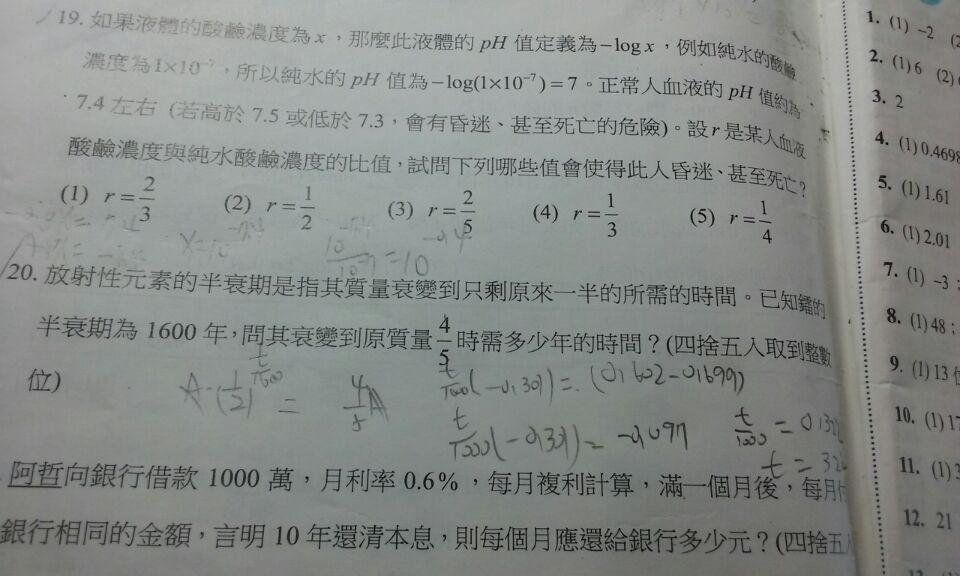 19. 如果液體的酸鹼濃度為 x，那麼此液體的 pH 值定義為 −log x，例如純水的酸鹼
濃度為 1×10⁻⁷，所以純水的 pH 值為 −log(1×10⁻⁷) = 7。正常人血液的 pH 值約為
7.4 左右 (若高於 7.5 或低於 7.3，會有昏迷、甚至死亡的危險)。設 r 是某人血液
酸鹼濃度與純水酸鹼濃度的比值，試問下列哪些值會使得此人昏迷、甚至死亡？
(1) r = 2/3 (2) r = 1/2 (3) r = 2/5 (4) r = 1/3 (5) r = 1/4
10⁻⁷·⁴/10⁻⁷ = 10⁻⁰·⁴
20. 放射性元素的半衰期是指其質量衰變到只剩原來一半的所需的時間。已知鐳的
半衰期為 1600 年，問其衰變到原質量 4/5 時需多少年的時間？(四捨五入取到整數
位)
A·(1/2) = 4/5 A
(−0.301) = (0.602−0.699)
(−0.301) = −0.097
t =
阿哲向銀行借款 1000 萬，月利率 0.6%，每月複利計算，滿一個月後，每月付
銀行相同的金額，言明 10 年還清本息，則每個月應還給銀行多少元？(四捨五入
1. (1) −2 (2
2. (1) 6 (2)
3. 2
4. (1) 0.4698
5. (1) 1.61
6. (1) 2.01
7. (1) −3；
8. (1) 48；
9. (1) 13 位
10. (1) 17
11. (1) 3
12. 21